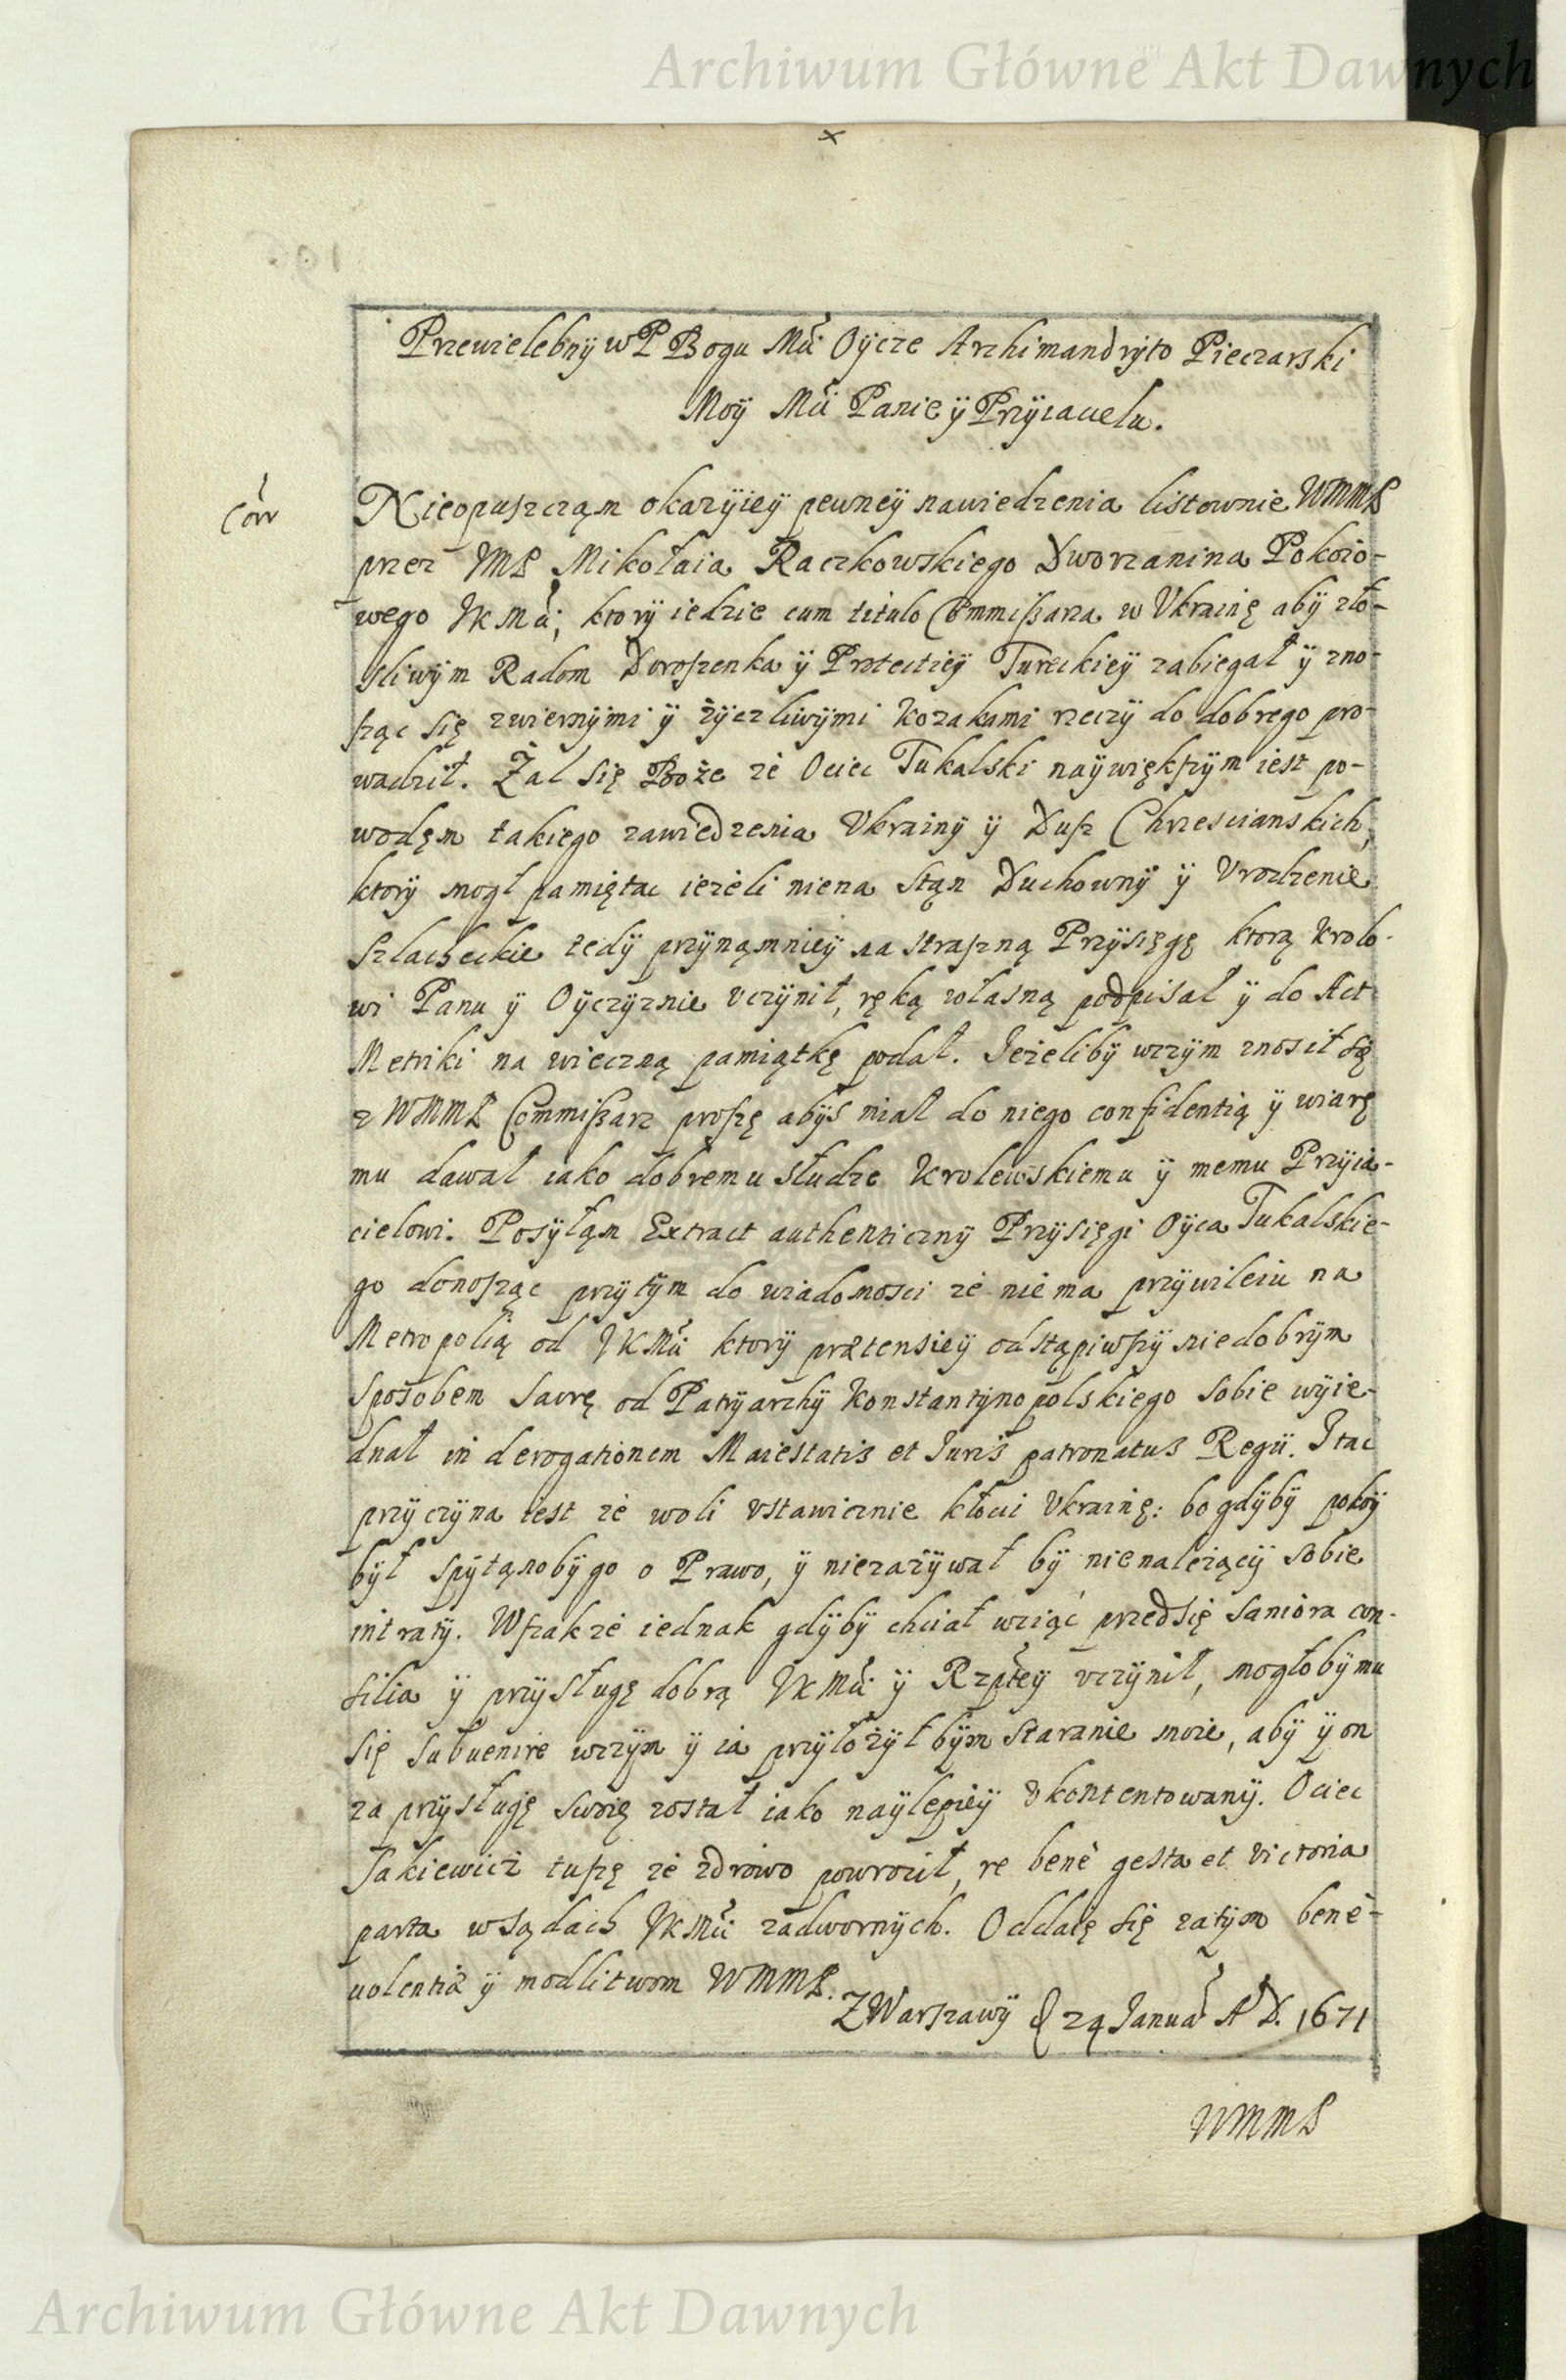 Archiwum Główne Akt Dawnych
Przewielebny w P Bogu Mci Oycze Archimandryto Pieczarski
Moÿ Mci Panie ÿ Przÿiacielu.
Nieopuszcząm okazÿieÿ pewneÿ nawiedzenia listownie WMMP
przez JMP Mikołaia Raczkowskiego Dworzanina Pokoio-
wego JKMci; ktorÿ iedzie cum titulo Commissarza w Vkrainę abÿ zło-
sliwÿm Radom Doroszenka ÿ Protectieÿ Tureckieÿ zabiegał ÿ zno-
sząc się zwiernÿmi ÿ żÿczliwÿmi Kozakami rzeczÿ do dobrego pro-
wadził. Żal się Boże że Ociec Tukalski naÿwiększÿm iest po-
wodęm takiego zawiedzenia Vkrainÿ ÿ Dusz Chrzescianskich,
ktorÿ mogł pamiętac ieżeli niena Stąn Duchownÿ ÿ Vrodzenie
Szlacheckie tedÿ przÿnąmnieÿ na straszną Przÿsięgę ktorą Krolo-
wi Panu ÿ Oÿczÿznie vczÿnił, ręką własną podpisał ÿ do Act
Metriki na wieczną pamiątkę podał. Jeżelibÿ wczÿm znosił się
z WMMP Commissarz proszę abÿs miał do niego confidentią ÿ wiarę
mu dawał iako dobremu słudze Krolewskiemu ÿ memu Przÿia-
cielowi. Posÿłąm Extract authenticznÿ Przÿsięgi Oÿca Tukalskie-
go donosząc przÿtÿm do wiadomosci że niema przÿwileiu na
Metropolią od JKMci ktorÿ prætensieÿ odstąpiwszÿ niedobrÿm
sposobem Sacrę od Patrÿarchÿ Konstantÿnopolskiego sobie wÿie-
dnał in derogationem Maiestatis et Juris patronatus Regii. I tac
przÿczÿna iest że woli vstawicznie kłocic Vkrainę: bo gdÿbÿ pokoÿ
bÿł spÿtąnobÿ go o Prawo, ÿ niezażÿwał bÿ nienależącÿ sobie
intratÿ. Wszakże iednak gdÿbÿ chciał wziąć przedsię saniora con-
silia ÿ przÿsługę dobrą JKMci ÿ Rzpteÿ vczÿnił, mogłobÿ mu
się subuenire wczÿm ÿ ia przÿłożÿł bÿm staranie moie, abÿ ÿ on
za przÿsługę swoię został iako naÿlepieÿ vkontentowanÿ. Ociec
tuszę że zdrowo powrocił, re benè gesta et victoria
parta w Sądach JKMci zadwornÿch. Oddaię się zatÿm benè-
uolentiæ ÿ modlitwom WMMP.
Z Warszawÿ d 24 Janua A D. 1671
WMMP
Archiwum Główne Akt Dawnych